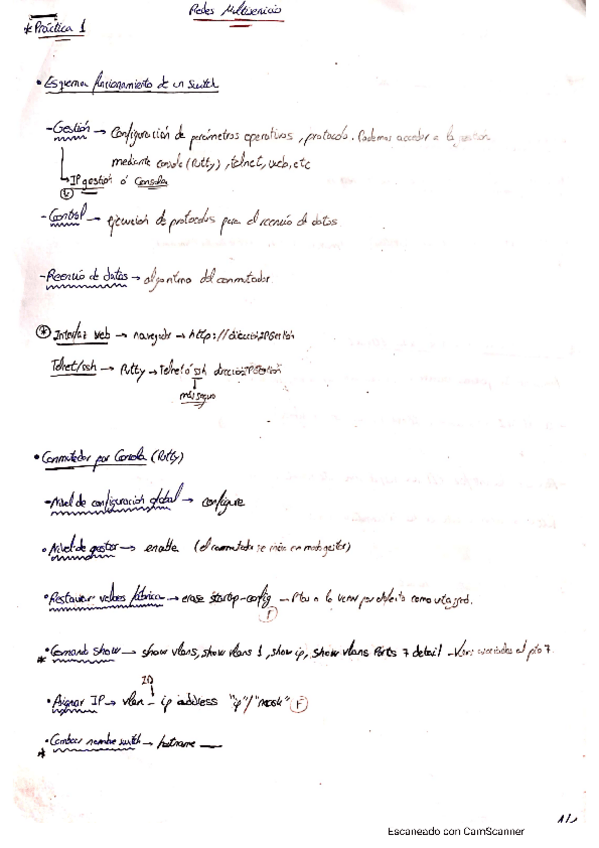 Redes Multiservicio
*Práctica 1
• Esquema funcionamiento de un switch
- Gestión → Configuración de parámetros operativos, protocolo. Podemos acceder a la gestión
mediante consola (Putty), telnet, web, etc
→ IP gestión ó Consola
- Control → ejecución de protocolos para el reenvío de datos
- Reenvío de datos → algoritmo del conmutador
* Interfaz web → navegador → http://direcciónIPGestión
Telnet/ssh → Putty → Telnet ó ssh direcciónIPGestión
más seguro
• Conmutador por Consola (Putty)
- Nivel de configuración global → configure
• Nivel de gestor → enable (el conmutador se inicia en modo gestor)
• Restaurar valores fábrica → erase startup-config
F
* • Comando show → show vlans, show vlans 1, show ip, show vlans Ports 7 detail - Vlans asociadas al pto 7.
ID
• Asignar IP → vlan _ ip address "ip"/"mask" F
* • Cambiar nombre switch → hostname __
1/2
Escaneado con CamScanner